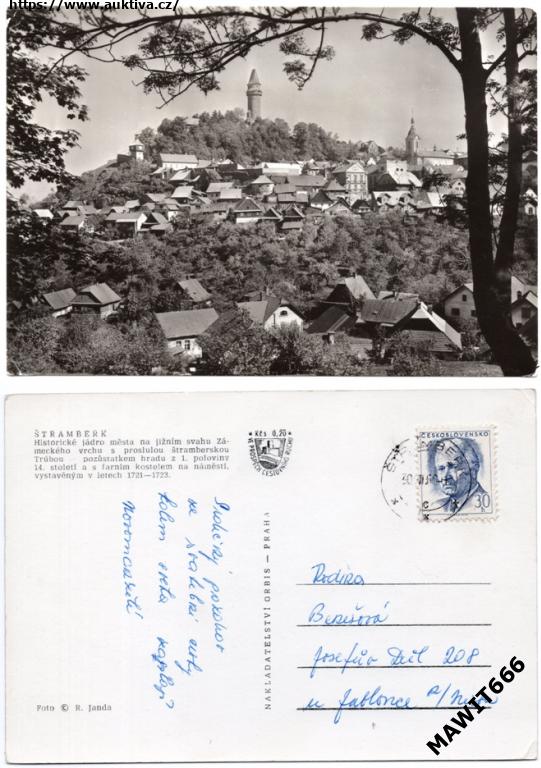 https://www.auktiva.cz/
ŠTRAMBERK
Historické jádro města na jižním svahu Zá-
meckého vrchu s proslulou štramberskou
Trúbou — pozůstatkem hradu z 1. poloviny
14. století a s farním kostelem na náměstí,
vystavěným v letech 1721—1723.
Kčs 0,20
VE PROSPĚCH CESTOVNÍHO RUCHU
ČESKOSLOVENSKO
30
ŠTRAMBERK
Srdečný pozdrav
ze svatební cesty
kolem světa
Novomanželé
NAKLADATELSTVÍ ORBIS — PRAHA
Rodina
Josefův Důl 208
u Jablonce n/Nisou
Foto © R. Janda
MAWIT666